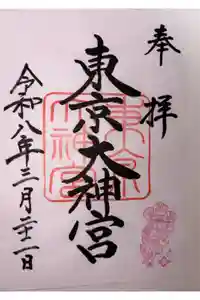 奉拝
東京大神宮
東京大神宮
令和八年三月二十一日